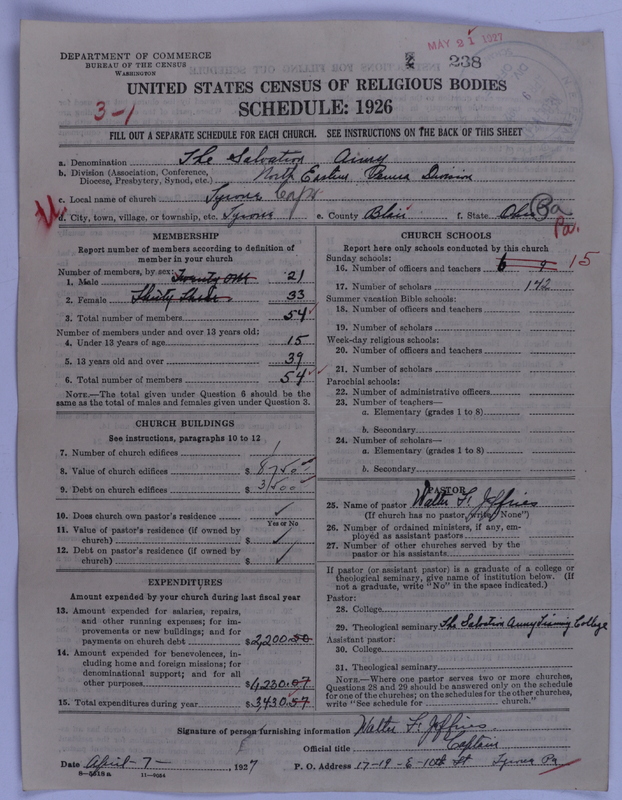 MAY 21 1927
238
DEPARTMENT OF COMMERCE
BUREAU OF THE CENSUS
WASHINGTON
UNITED STATES CENSUS OF RELIGIOUS BODIES
SCHEDULE: 1926
3-1
FILL OUT A SEPARATE SCHEDULE FOR EACH CHURCH. SEE INSTRUCTIONS ON THE BACK OF THIS SHEET
a. Denomination The Salvation Army
b. Division (Association, Conference, Diocese, Presbytery, Synod, etc.) North Eastern Penna Division
c. Local name of church Tyrone Corps
d. City, town, village, or township, etc. Tyrone e. County Blair f. State Pa
Pa.
MEMBERSHIP
Report number of members according to definition of member in your church
Number of members, by sex:
1. Male Twenty One 21
2. Female Thirty Three 33
3. Total number of members 54
Number of members under and over 13 years old:
4. Under 13 years of age 15
5. 13 years old and over 39
6. Total number of members 54
NOTE.—The total given under Question 6 should be the same as the total of males and females given under Question 3.
CHURCH BUILDINGS
See instructions, paragraphs 10 to 12
7. Number of church edifices 1
8. Value of church edifices $
9. Debt on church edifices $ 3500
10. Does church own pastor's residence
Yes or No
11. Value of pastor's residence (if owned by church) $
12. Debt on pastor's residence (if owned by church) $
EXPENDITURES
Amount expended by your church during last fiscal year
13. Amount expended for salaries, repairs, and other running expenses; for improvements or new buildings; and for payments on church debt $2,200.50
14. Amount expended for benevolences, including home and foreign missions; for denominational support; and for all other purposes $1,230.07
15. Total expenditures during year $3,430.57
CHURCH SCHOOLS
Report here only schools conducted by this church
Sunday schools:
16. Number of officers and teachers 6 9 15
17. Number of scholars 142
Summer vacation Bible schools:
18. Number of officers and teachers
19. Number of scholars
Week-day religious schools:
20. Number of officers and teachers
21. Number of scholars
Parochial schools:
22. Number of administrative officers
23. Number of teachers—
a. Elementary (grades 1 to 8)
b. Secondary
24. Number of scholars—
a. Elementary (grades 1 to 8)
b. Secondary
PASTOR
25. Name of pastor Walter F. Jeffries
(If church has no pastor, write "None")
26. Number of ordained ministers, if any, employed as assistant pastors
27. Number of other churches served by the pastor or his assistants
If pastor (or assistant pastor) is a graduate of a college or theological seminary, give name of institution below. (If not a graduate, write "No" in the space indicated.)
Pastor:
28. College
29. Theological seminary The Salvation Army Training College
Assistant pastor:
30. College
31. Theological seminary
NOTE.—Where one pastor serves two or more churches, Questions 28 and 29 should be answered only on the schedule for one of the churches; on the schedules for the other churches, write "See schedule for church."
Signature of person furnishing information Walter F. Jeffries
Official title Captain
Date April-7-, 1927 P. O. Address 17-19-E-10th St Tyrone Pa
8-5518a 11-9054